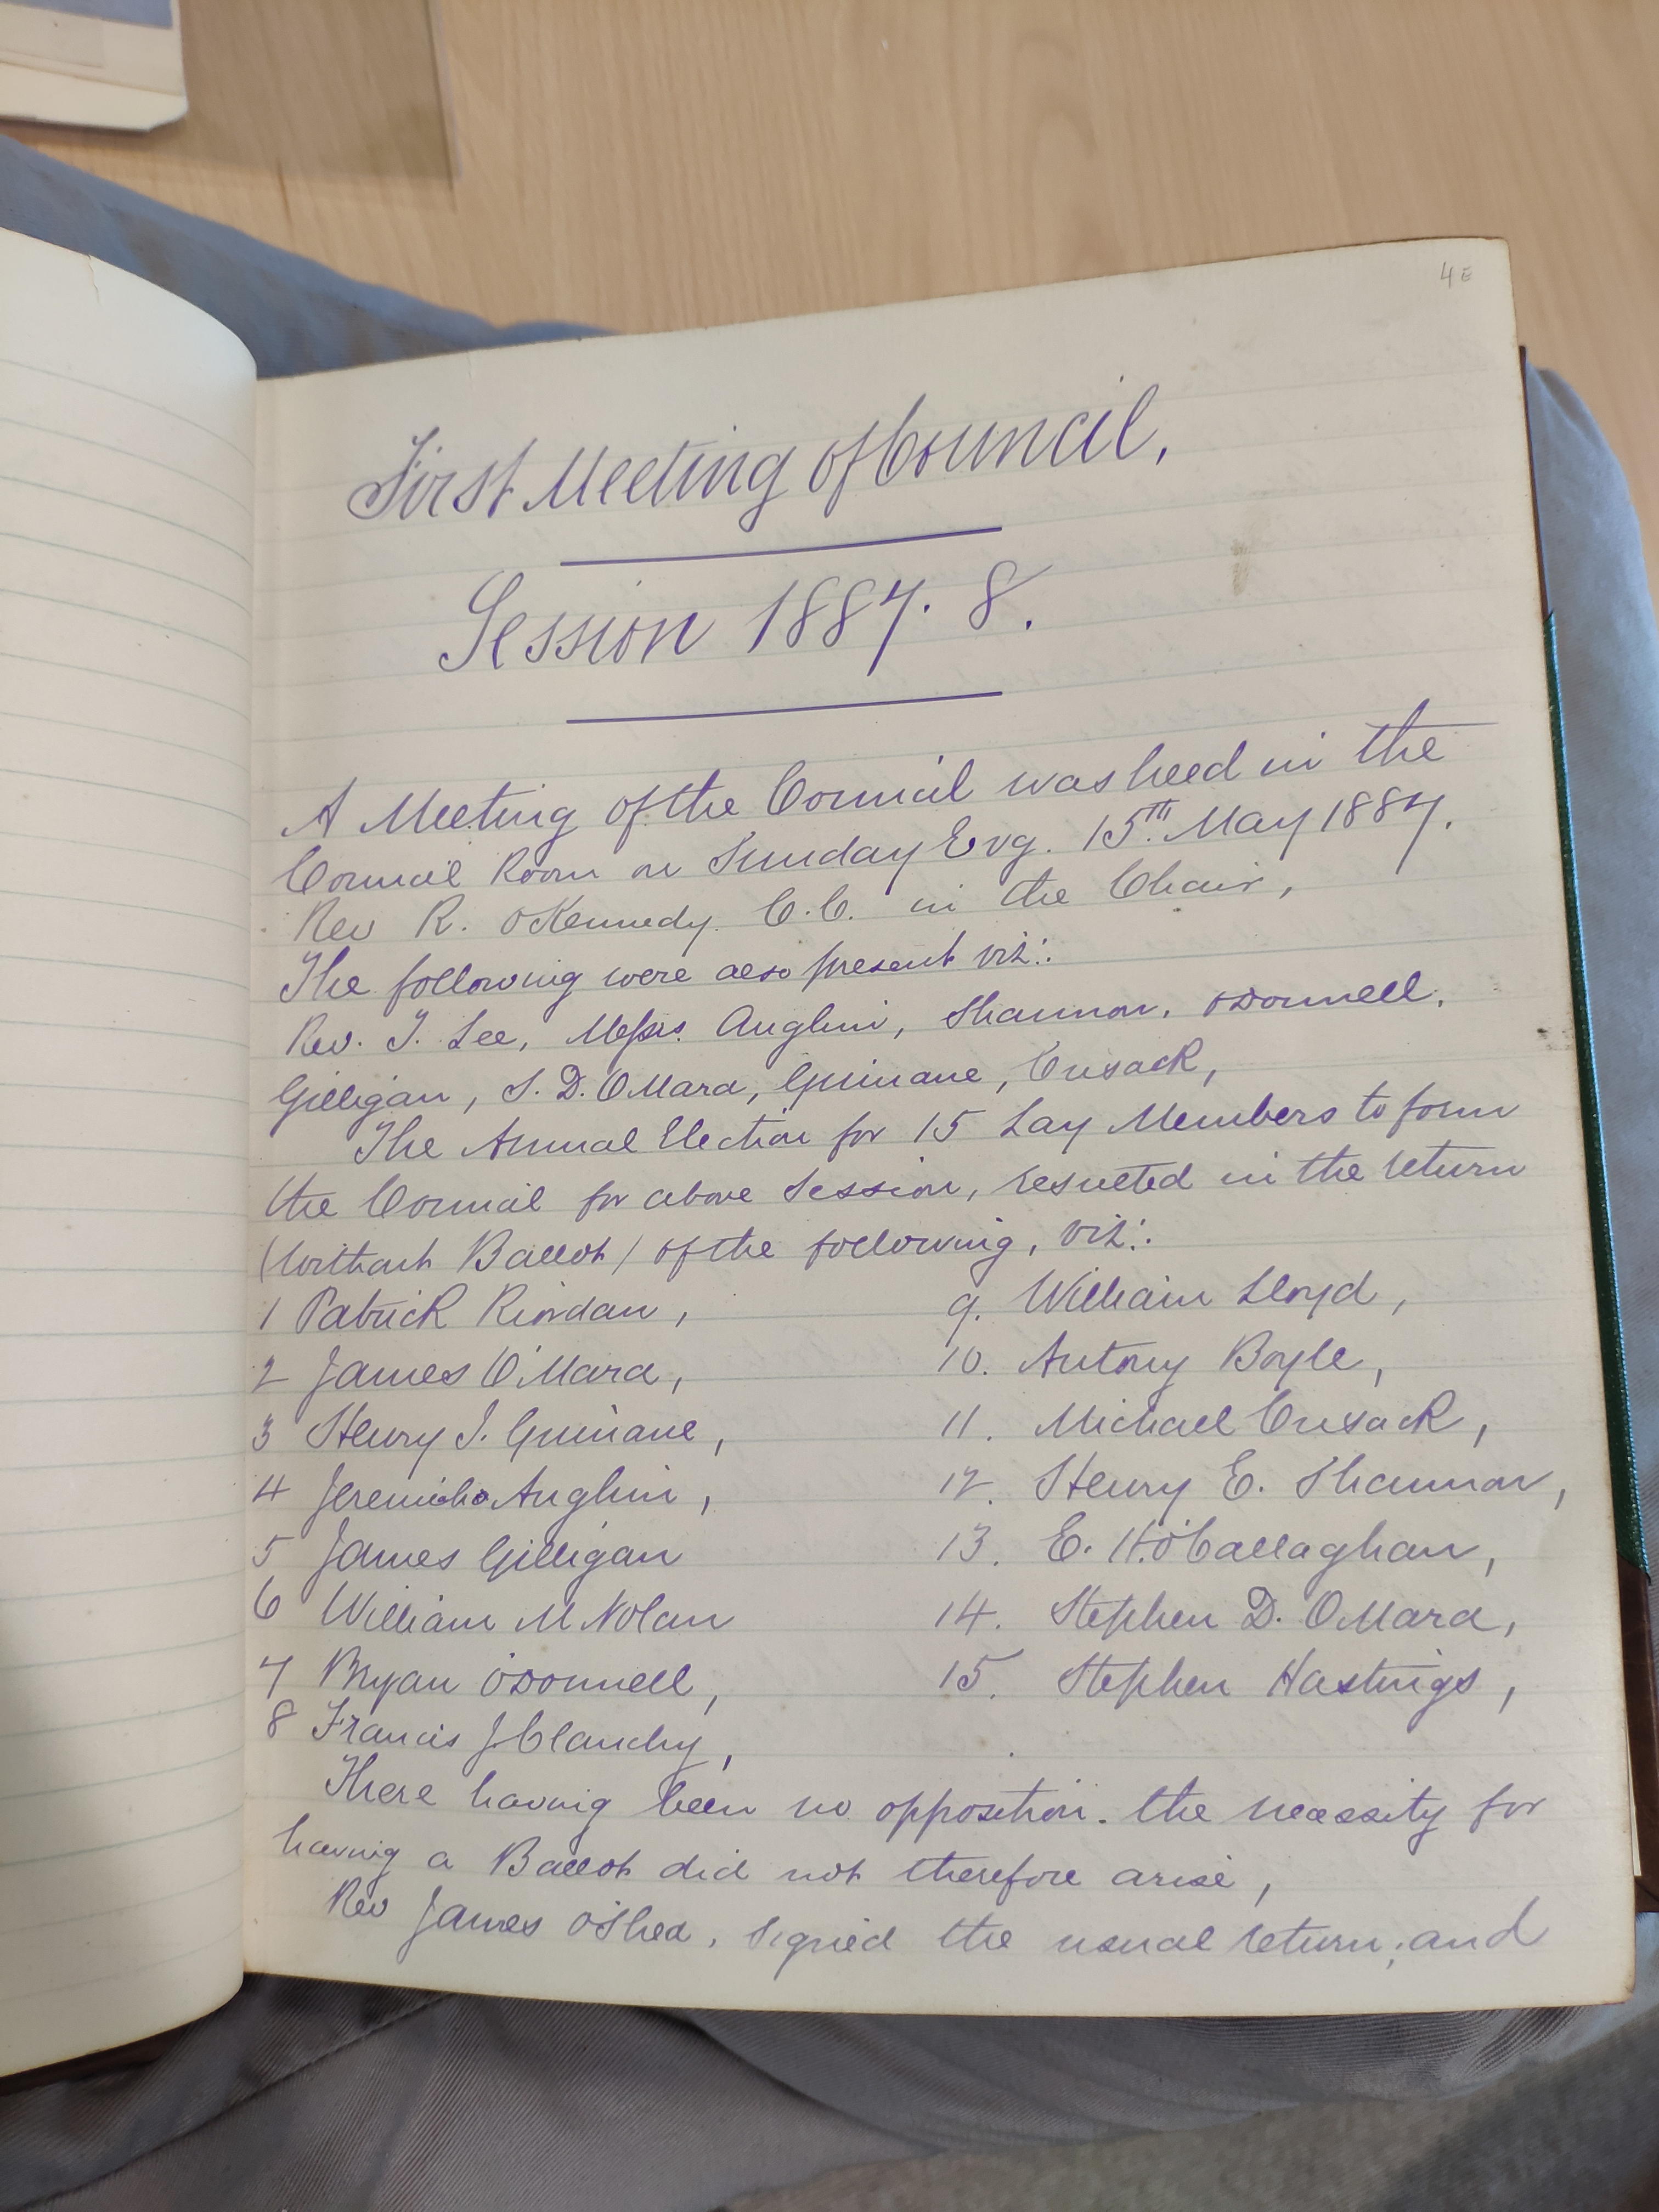 4E
First Meeting of Council,
Session 1887. 8.
A Meeting of the Council was held in the
Council Room on Sunday Evg. 15th. May 1887.
Rev R. O'Kennedy. C.C. in the Chair,
The following were also present viz:.
Rev. J. Lee, Messrs. Anglim, Shannon, O'Donnell,
Gilligan, S. D. O'Mara, Guinane, Cusack,
The Annual Election for 15 Lay Members to form
the Council for above Session, resulted in the return
(without Ballot) of the following, viz:.
1 Patrick Riordan,
2 James O'Mara,
3 Henry J. Guinane,
4 Jeremiah Anglim,
5 James Gilligan
6 William M Nolan
7 Bryan O'Donnell,
8 Francis J Clanchy,
9. William Lloyd,
10. Antony Boyle,
11. Michael Cusack,
12. Henry E. Shannon,
13. E. H. O'Callaghan,
14. Stephen D. O'Mara,
15. Stephen Hastings,
There having been no opposition. the necessity for
having a Ballot did not therefore arise,
Rev James O'Shea, signed the usual return; and